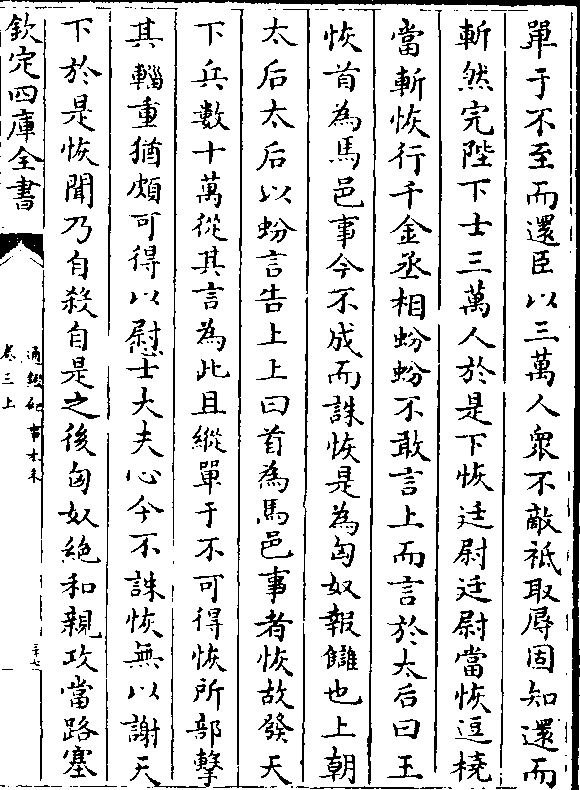 單于不至而還臣以三萬人衆不敵祗取辱固知還而
斬然完陛下士三萬人於是下恢廷尉廷尉當恢逗橈
當斬恢行千金丞相蚡蚡不敢言上而言於太后曰王
恢首為馬邑事今不成而誅恢是為匈奴報讎也上朝
太后太后以蚡言告上上曰首為馬邑事者恢故發天
下兵數十萬從其言為此且縱單于不可得恢所部擊
其輜重猶頗可得以慰士大夫心今不誅恢無以謝天
下於是恢聞乃自殺自是之後匈奴絶和親攻當路塞
欽定四庫全書
通鑑紀事本末
卷三上
三十七